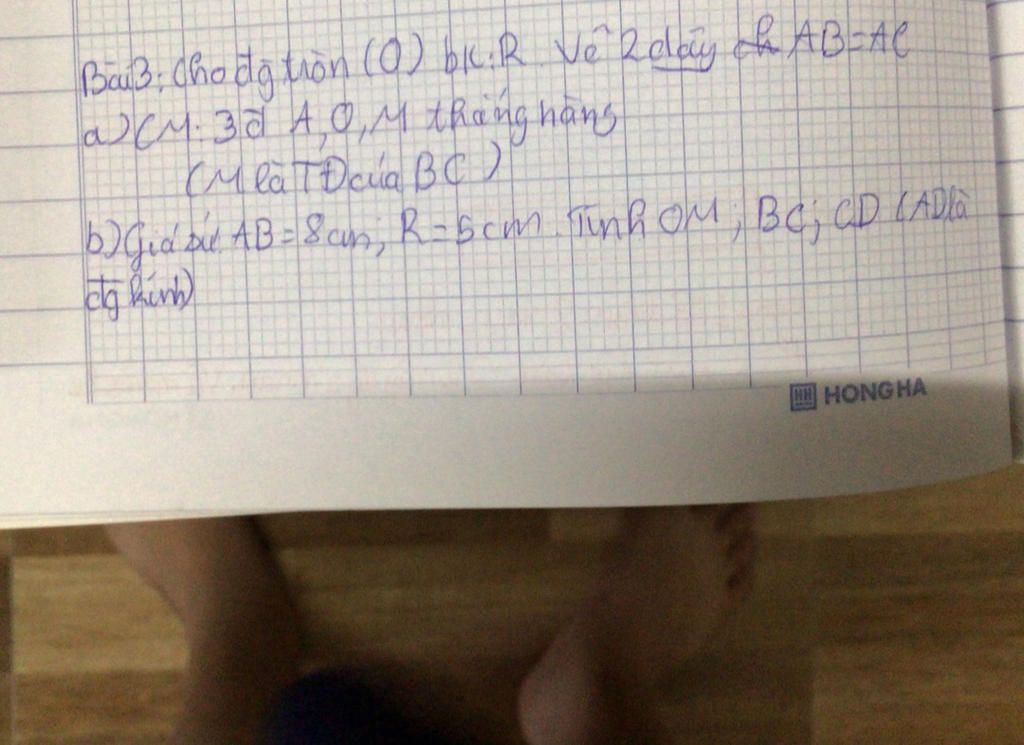 Bài 3: Cho đg tròn (O) bk: R. Vẽ 2 dây AB = AC
a) CM: 3 đ A, O, M thẳng hàng
(M là TĐ của BC)
b) Giả sử AB = 8cm; R = 5cm. Tính OM; BC; CD (AD là
đg kính)
HONG HA